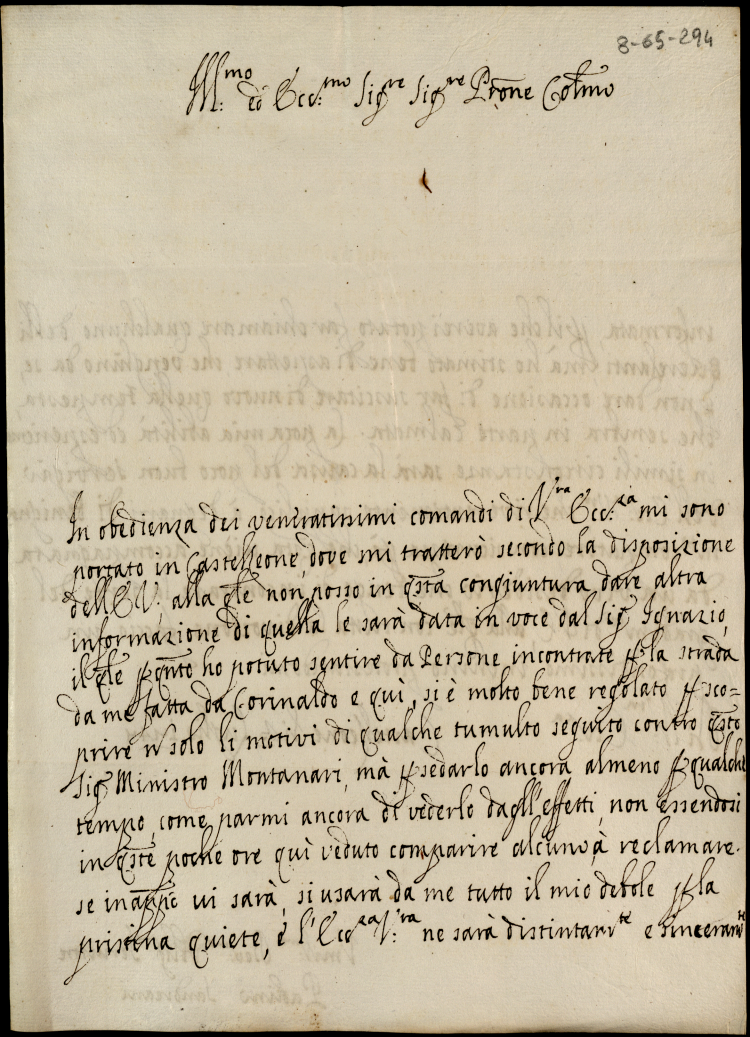 8-65-294
Ill:mo ed Ecc:mo Sigre Sigre Prone Colmo
In obedienza dei veneratissimi comandi di Vra Ecc:za mi sono
portato in Castelleone, dove mi tratterò secondo la disposizione
dell'E.V., alla qle non posso in qsta congiuntura dare altra
informazione di quella le sarà data in voce dal Sig Ignazio,
il qle p qnto ho potuto sentire da Persone incontrate p la strada
da me fatta da Corinaldo e quì, si è molto bene regolato p sco=
prire ñ solo li motivi di qualche tumulto seguito contro qsto
Sig Ministro Montanari, mà p sedarlo ancora almeno p qualche
tempo, come parmi ancora di vederlo dagll'effetti, non essendosi
in qste poche ore quì veduto comparire alcuno, à reclamare.
se in vi sarà, si usarà da me tutto il mio debole p la
pristina quiete, è l'Ecc:za V:ra ne sarà distintamte e sinceramte